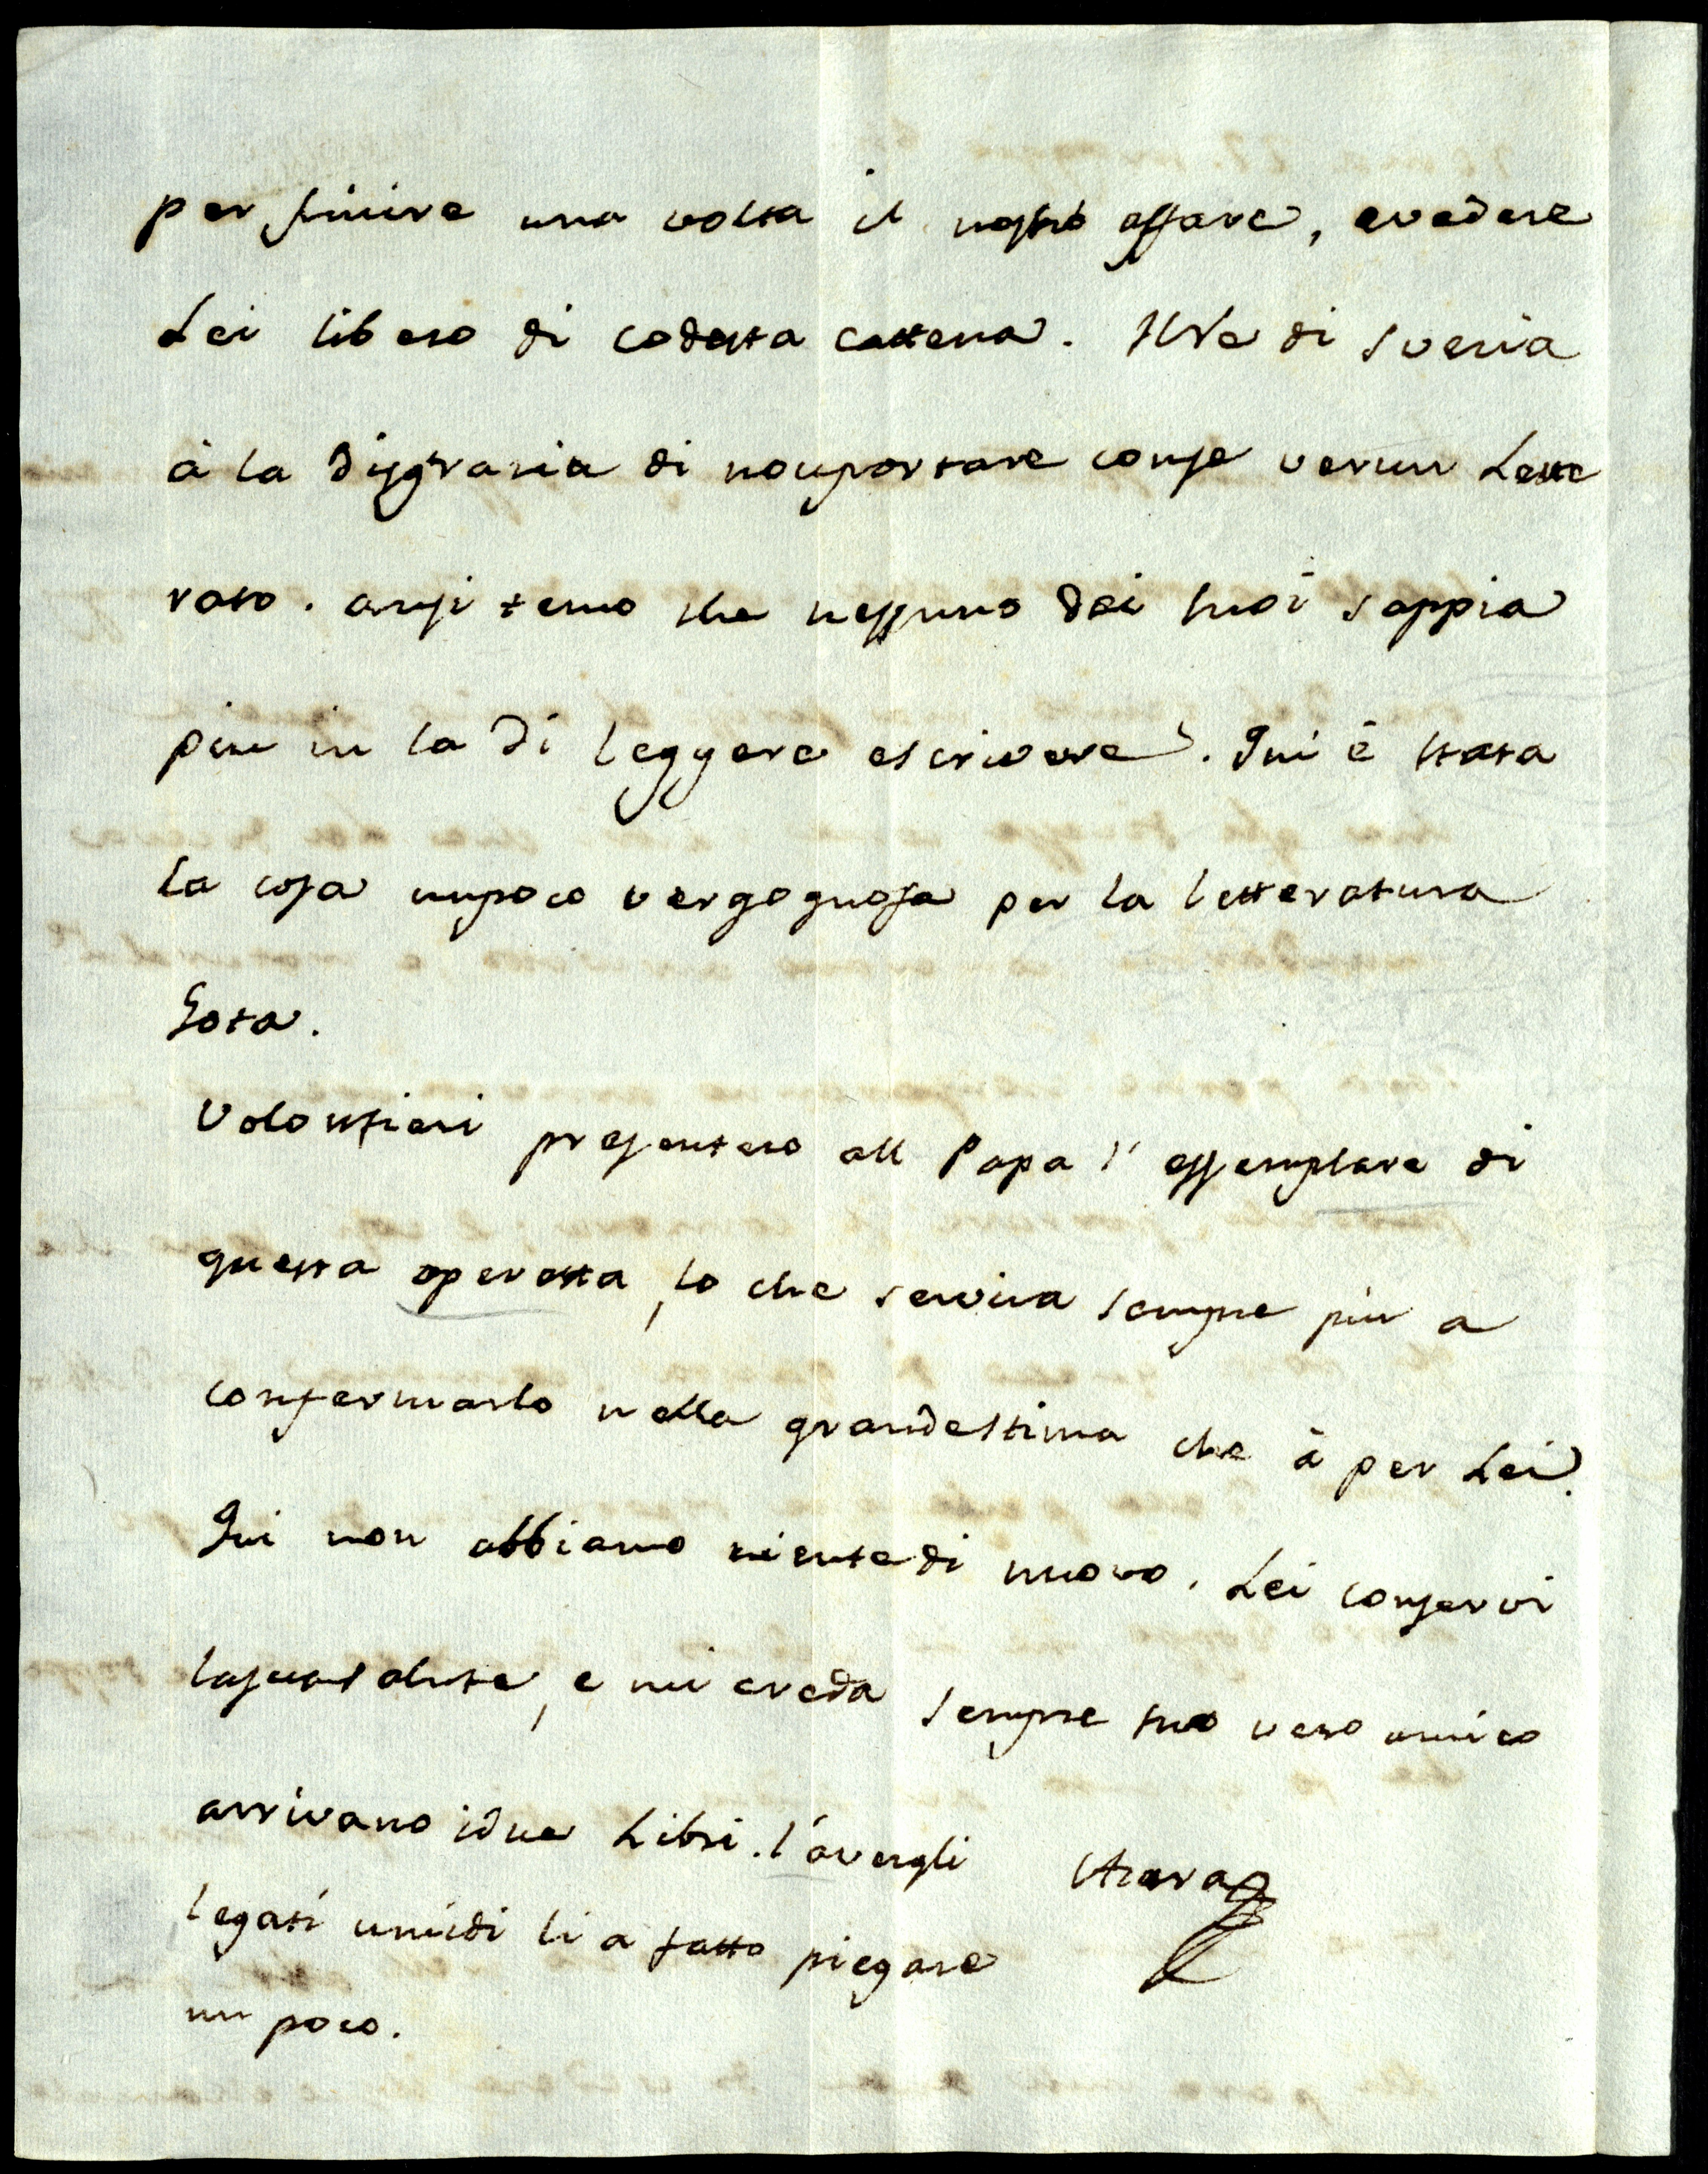 per finire una volta il nostro affare, evedere
Lei libero di codesta cattena. Il Re di Svezia
à la disgrazia di nonportare conse verun Lette
rato. anzi temo che nessuno dei suoi sappia
piu in la di leggere escrivere. Qui è stata
la cosa unpoco vergognosa per la letteratura
Gota.
Volontieri presentero all Papa l'essemplare di
questa operetta, lo che servira sempre piu a
confermarlo nella grandestima che à per Lei.
Qui non abbiamo nientedi nuovo. Lei conservi
lasuasalute, e mi creda sempre suo vero amico
arrivano idue Libri. l'avergli
Azara
legati umidi li a fatto piegare
un poco.